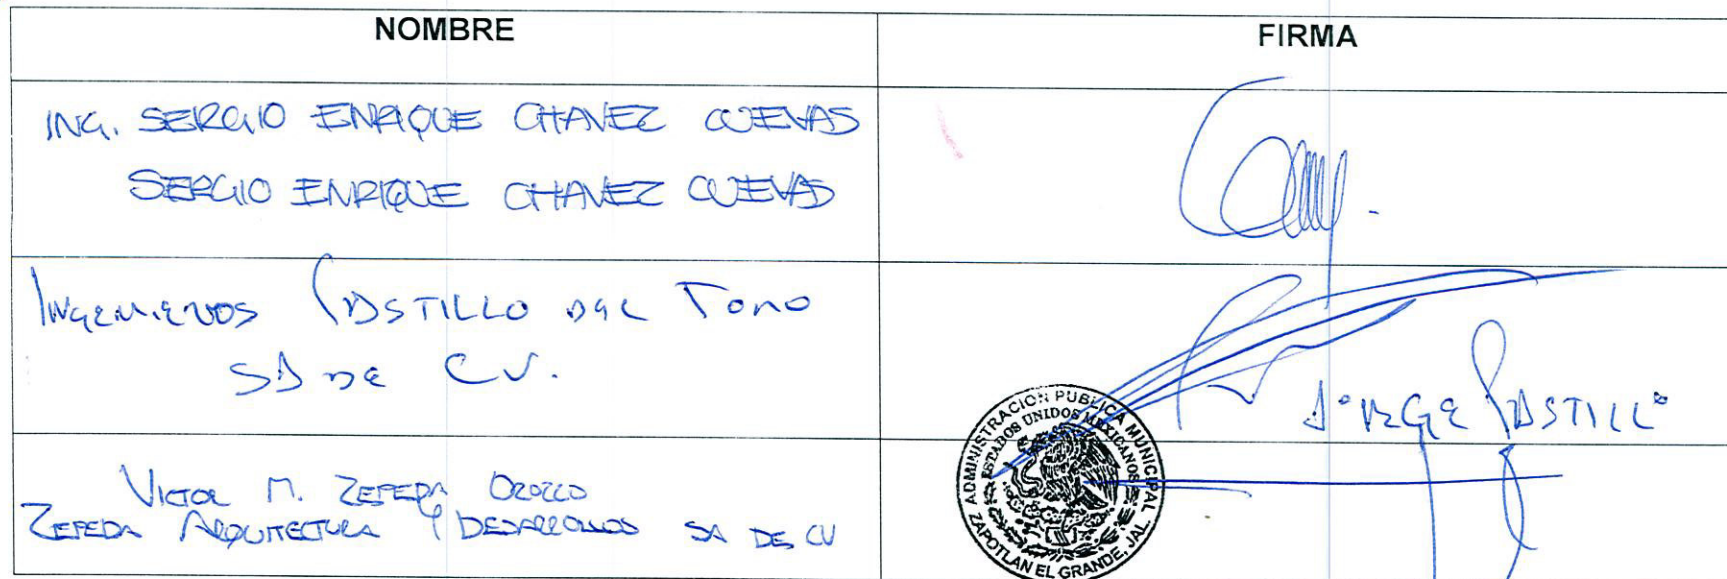 NOMBRE
FIRMA
ING. SERGIO ENRIQUE CHAVEZ CUEVAS
SERGIO ENRIQUE CHAVEZ CUEVAS
INGENIEROS CASTILLO DEL TORO
SA DE CV.
JORGE CASTILLO
VICTOR M. ZEPEDA OROZCO
ZEPEDA ARQUITECTURA Y DESARROLLOS SA DE CV
ADMINISTRACION PUBLICA MUNICIPAL
ESTADOS UNIDOS MEXICANOS
ZAPOTLAN EL GRANDE, JAL.